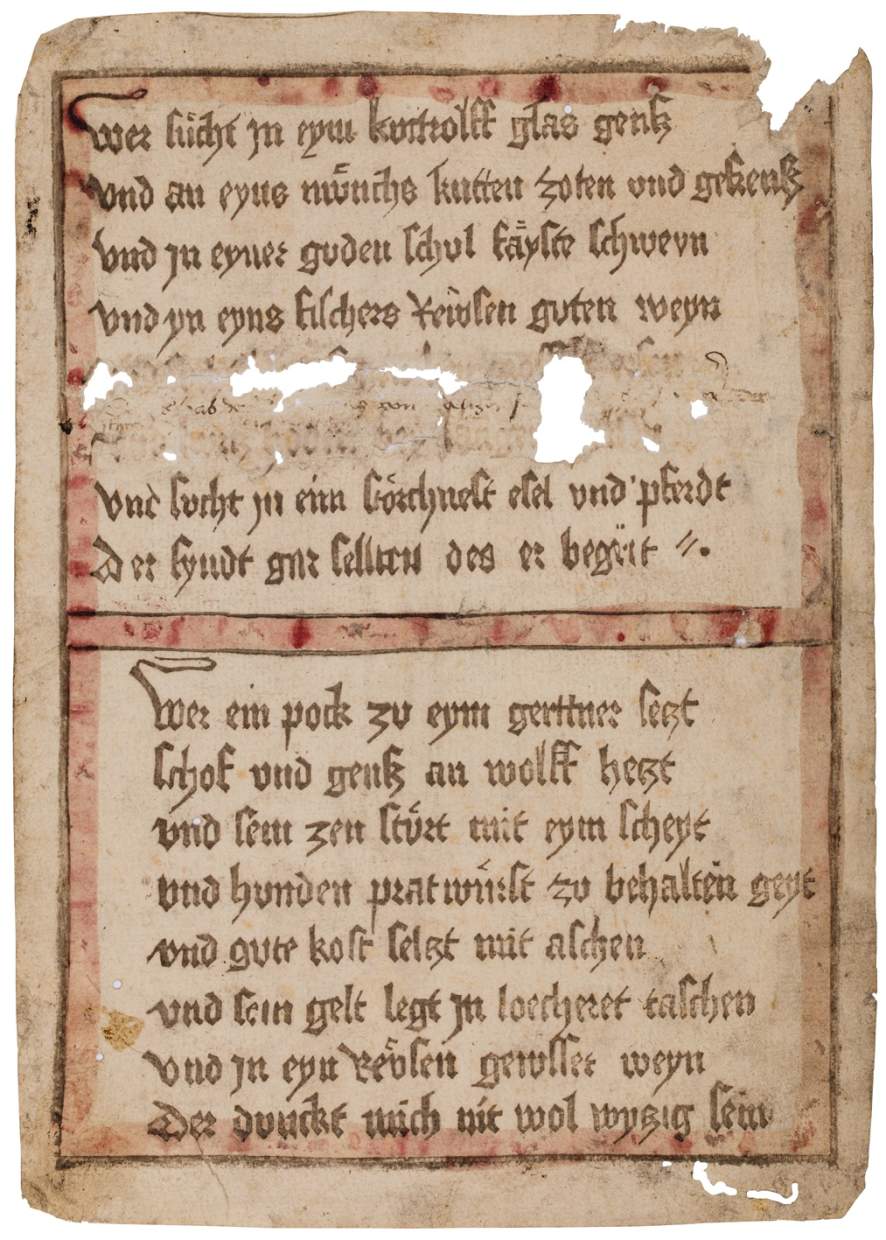 Wer sücht jn eym kuttrolff glas genß
vnd an eyns mönchs kutten zoten vnd gefrenß
vnd jn eyner goden schol fäyste schweyn
vnd yn eyns fischers Reüsen guten weyn
vnd sucht jn eim störchnest esel vnd pferdt
Der fyndt gar sellten des er begert
Wer ein pock zu eym gerttner setzt
schof vnd genß an wolff hetzt
vnd sein zen stört mit eym scheyt
vnd hunden pratwürst zu behalten geyt
vnd gute kost seltzt mit aschen
vnd sein gelt legt jn loecheret taschen
vnd jn eyn Reüsen geusset weyn
Der dunckt mich nit wol wytzig sein